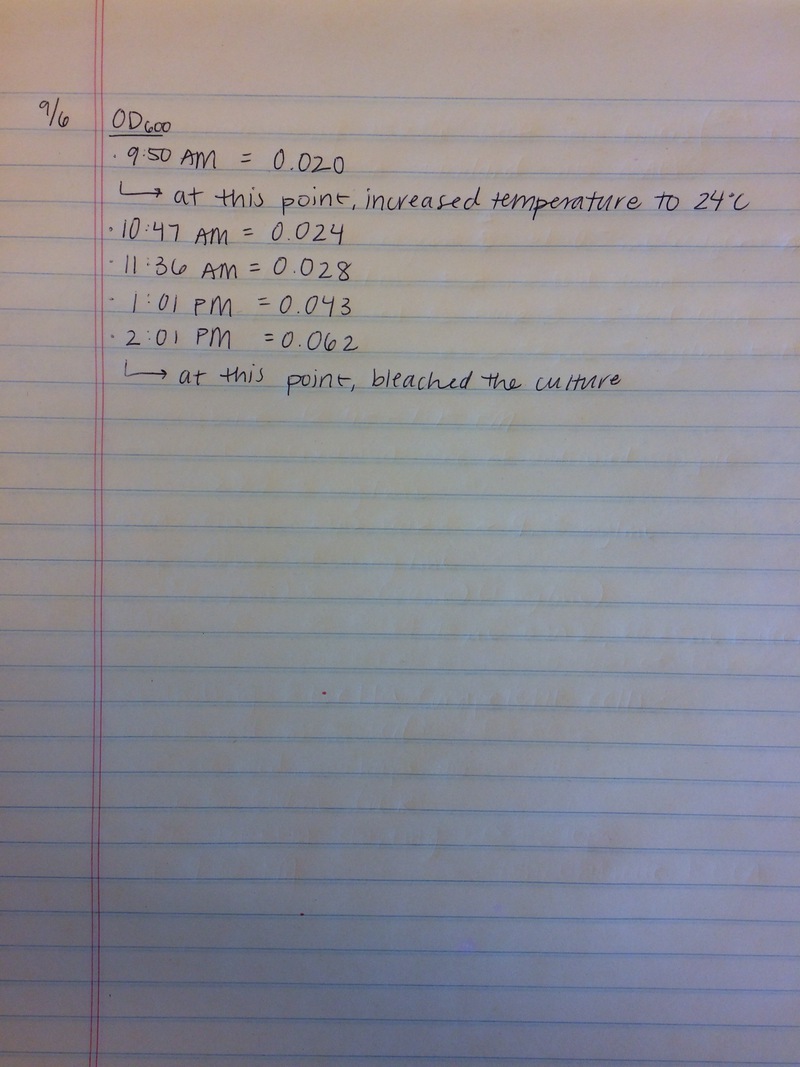 9/6 OD600
· 9:50 AM = 0.020
↳ at this point, increased temperature to 24°C
· 10:47 AM = 0.024
· 11:36 AM = 0.028
· 1:01 PM = 0.043
· 2:01 PM = 0.062
↳ at this point, bleached the culture